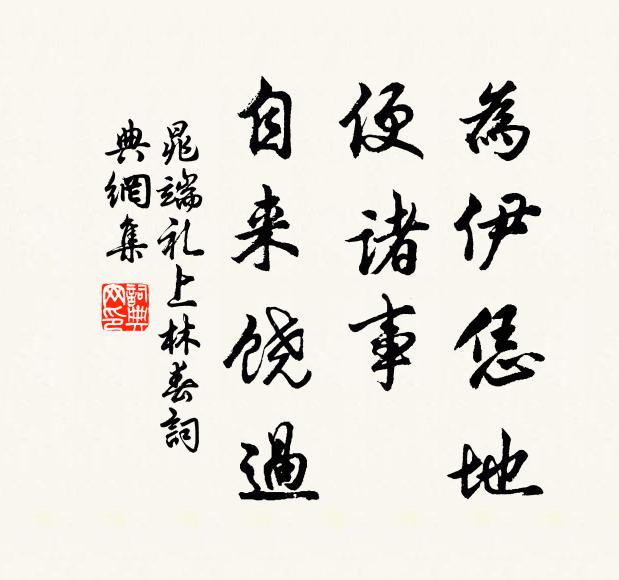 為伊恁地
便諸事
自来饒過
晁端礼上林春詞
典網集
詞典網印